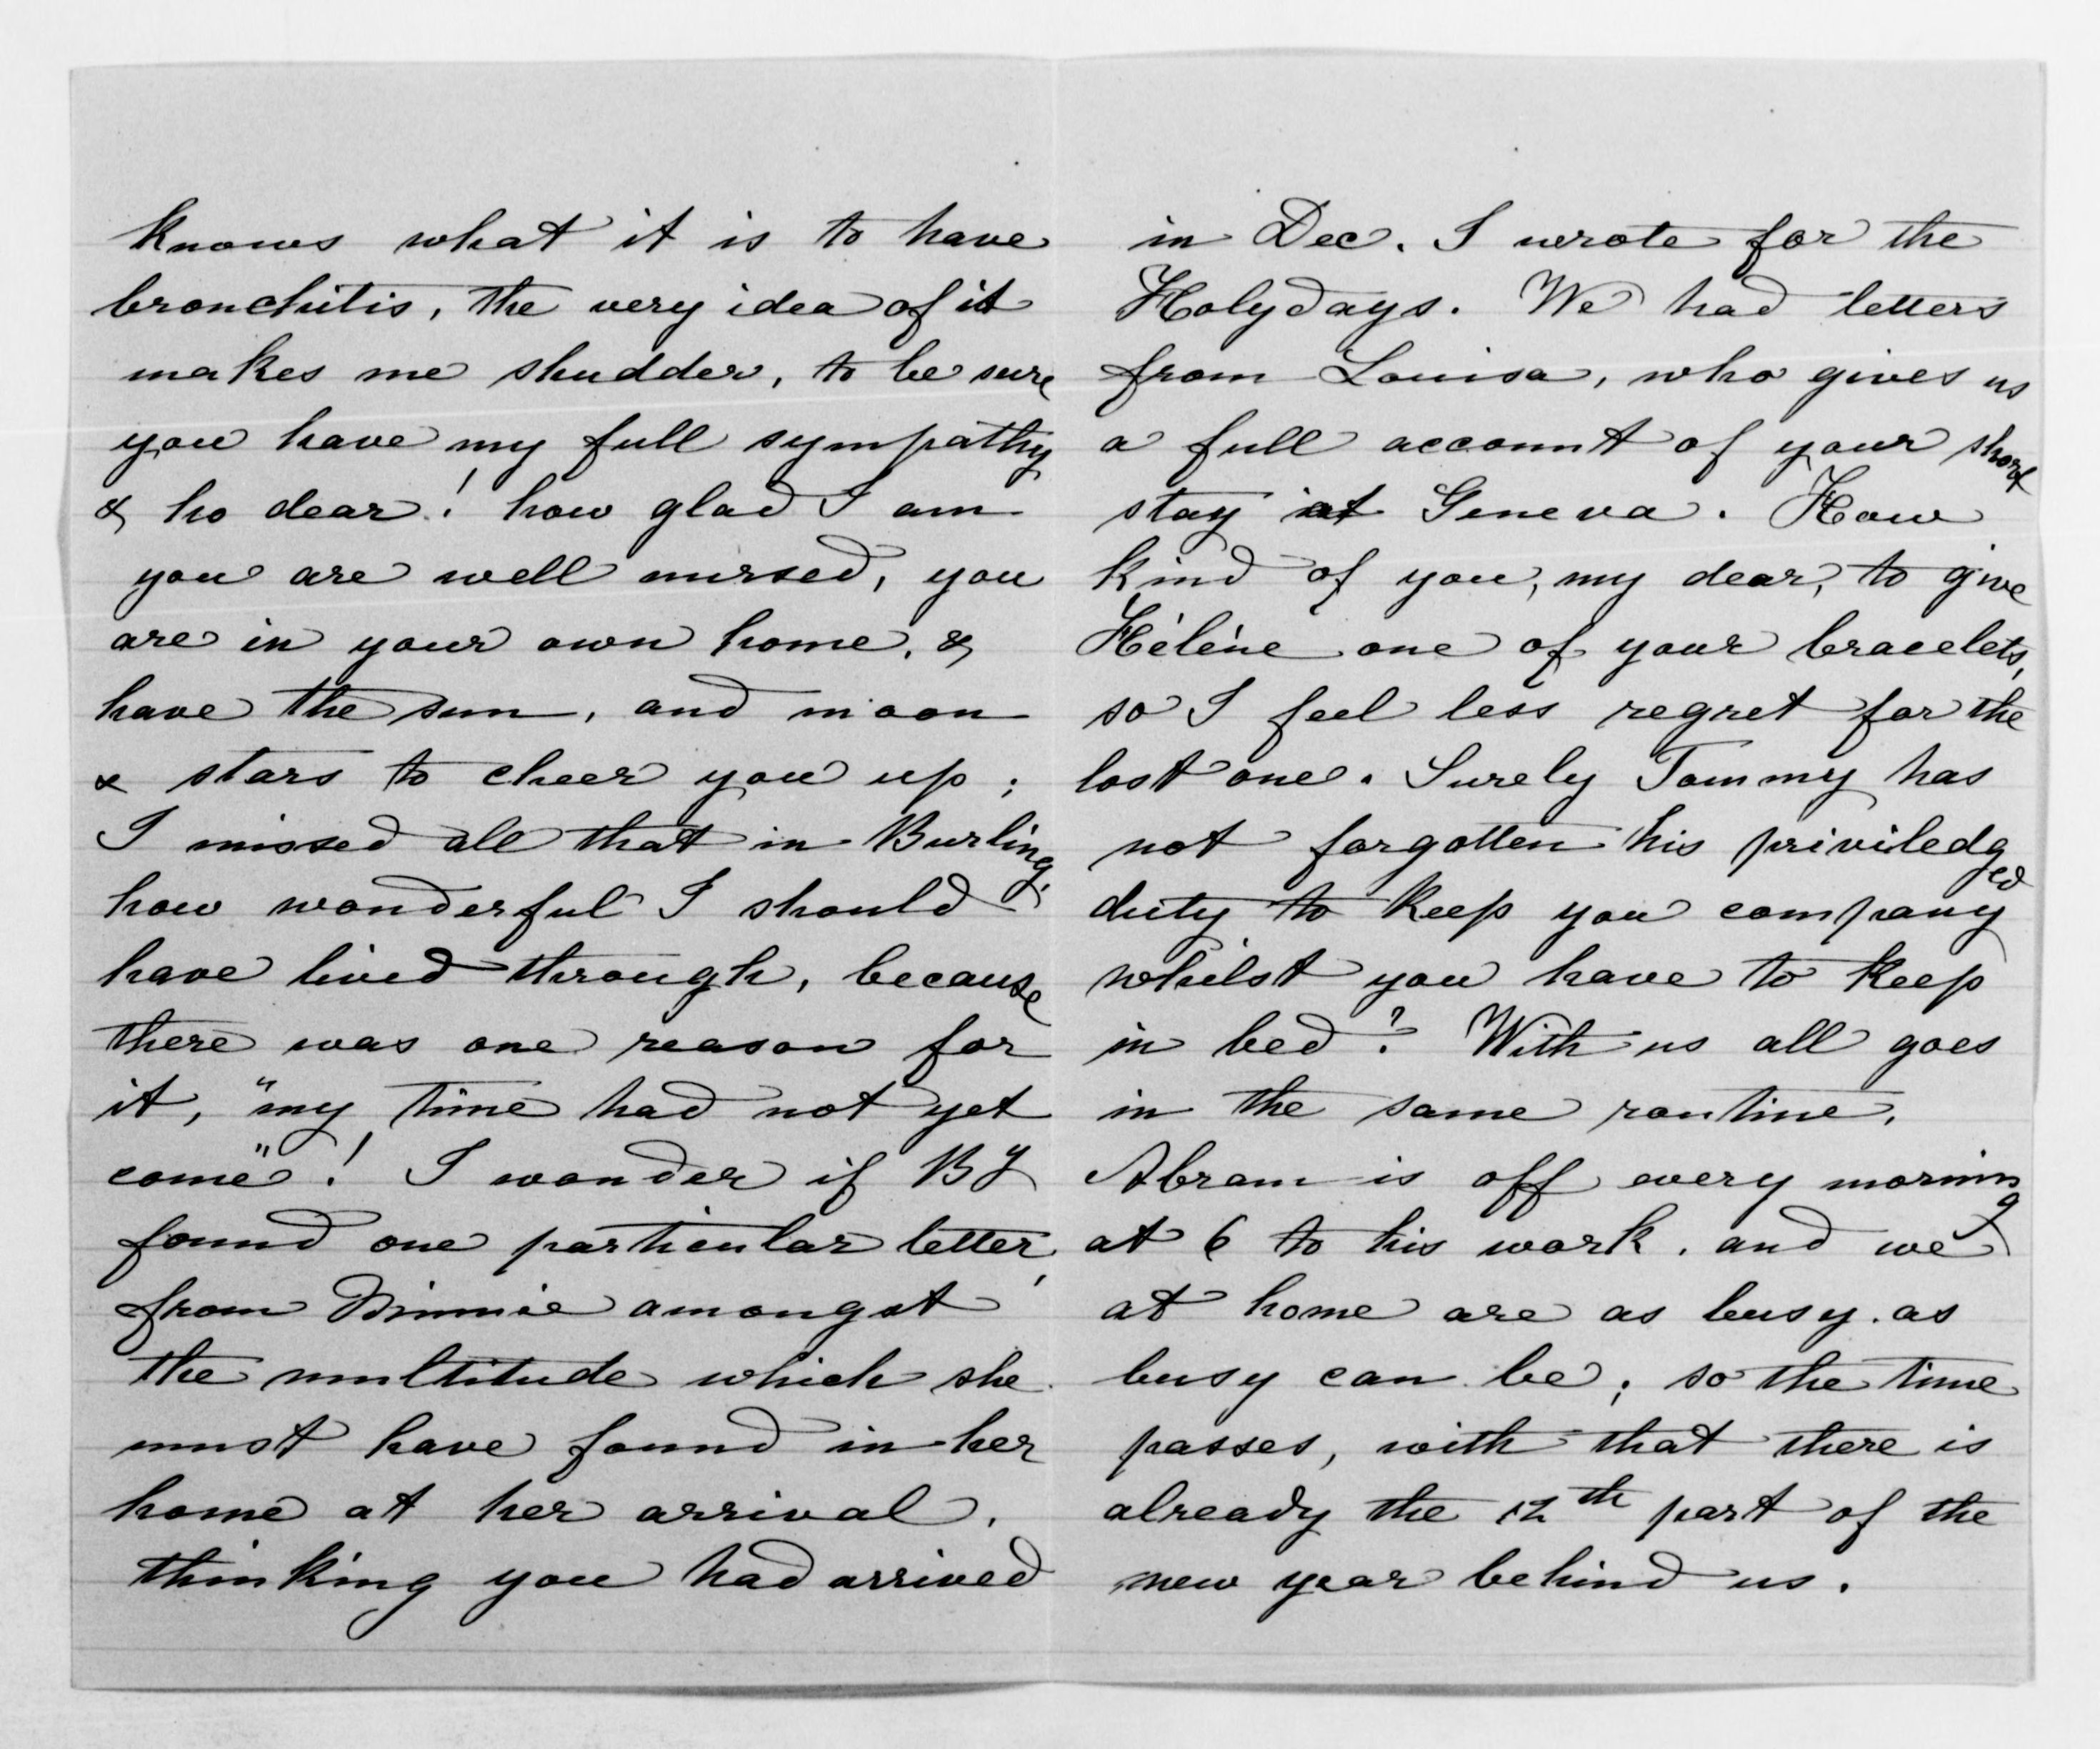 knows what it is to have
bronchitis, the very idea of it
makes me shudder, to be sure
you have my full sympathy
& ho dear! how glad I am
you are well nursed, you
are in your own home, &
have the sun, and moon
& stars to cheer you up;
I missed all that in Burling.
how wonderful I should
have lived through, because
there was one reason for
it, "my time had not yet
come"! I wonder if BY
found one particular letter,
from Minnie amongst
the multitude which she
must have found in her
home at her arrival.
thinking you had arrived
in Dec. I wrote for the
Holydays. We had letters
from Louisa, who gives us
a full account of your short
stay at Geneva. How
kind of you, my dear, to give
Hélène one of your bracelets,
so I feel less regret for the
lost one. Surely Tommy has
not forgotten his priviledged
duty to keep you company
whilst you have to keep
in bed? With us all goes
in the same routine.
Abram is off every morning
at 6 to his work. and we
at home are as busy. as
busy can be; so the time
passes, with that there is
already the 12th part of the
new year behind us.